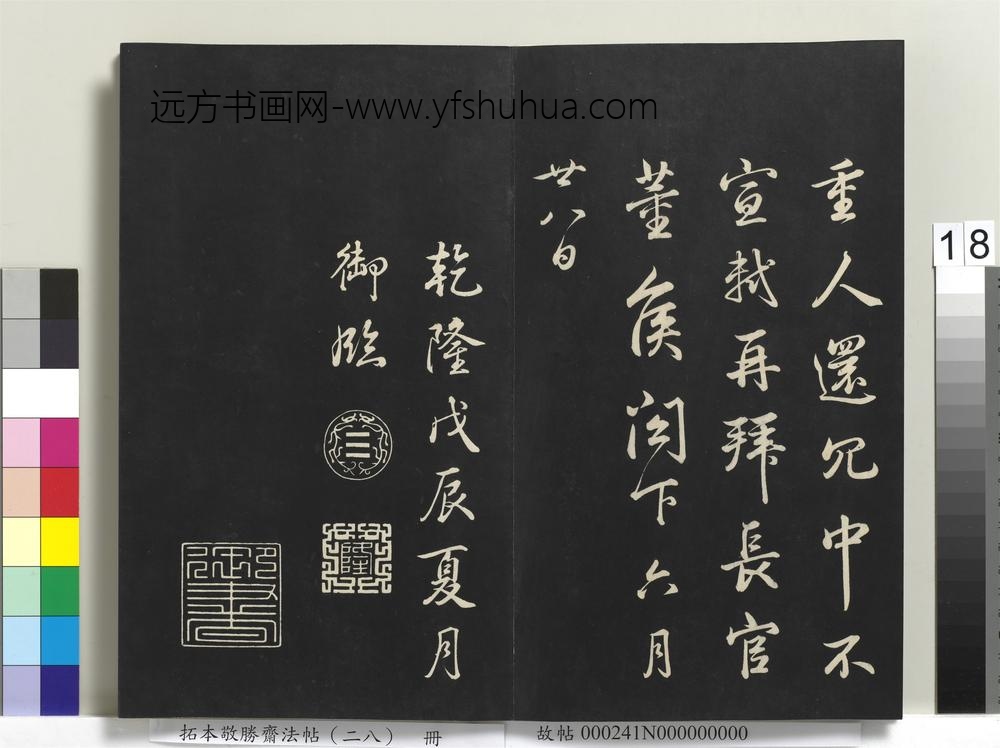 远方书画网-www.yfshuhua.com
重人還冗中不
宣軾再拜長官
董侯閣下六月
廿八日
乾隆戊辰夏月
御臨
☰
乾隆
御書
18
拓本敬勝齋法帖(二八) 冊
故帖 000241N000000000